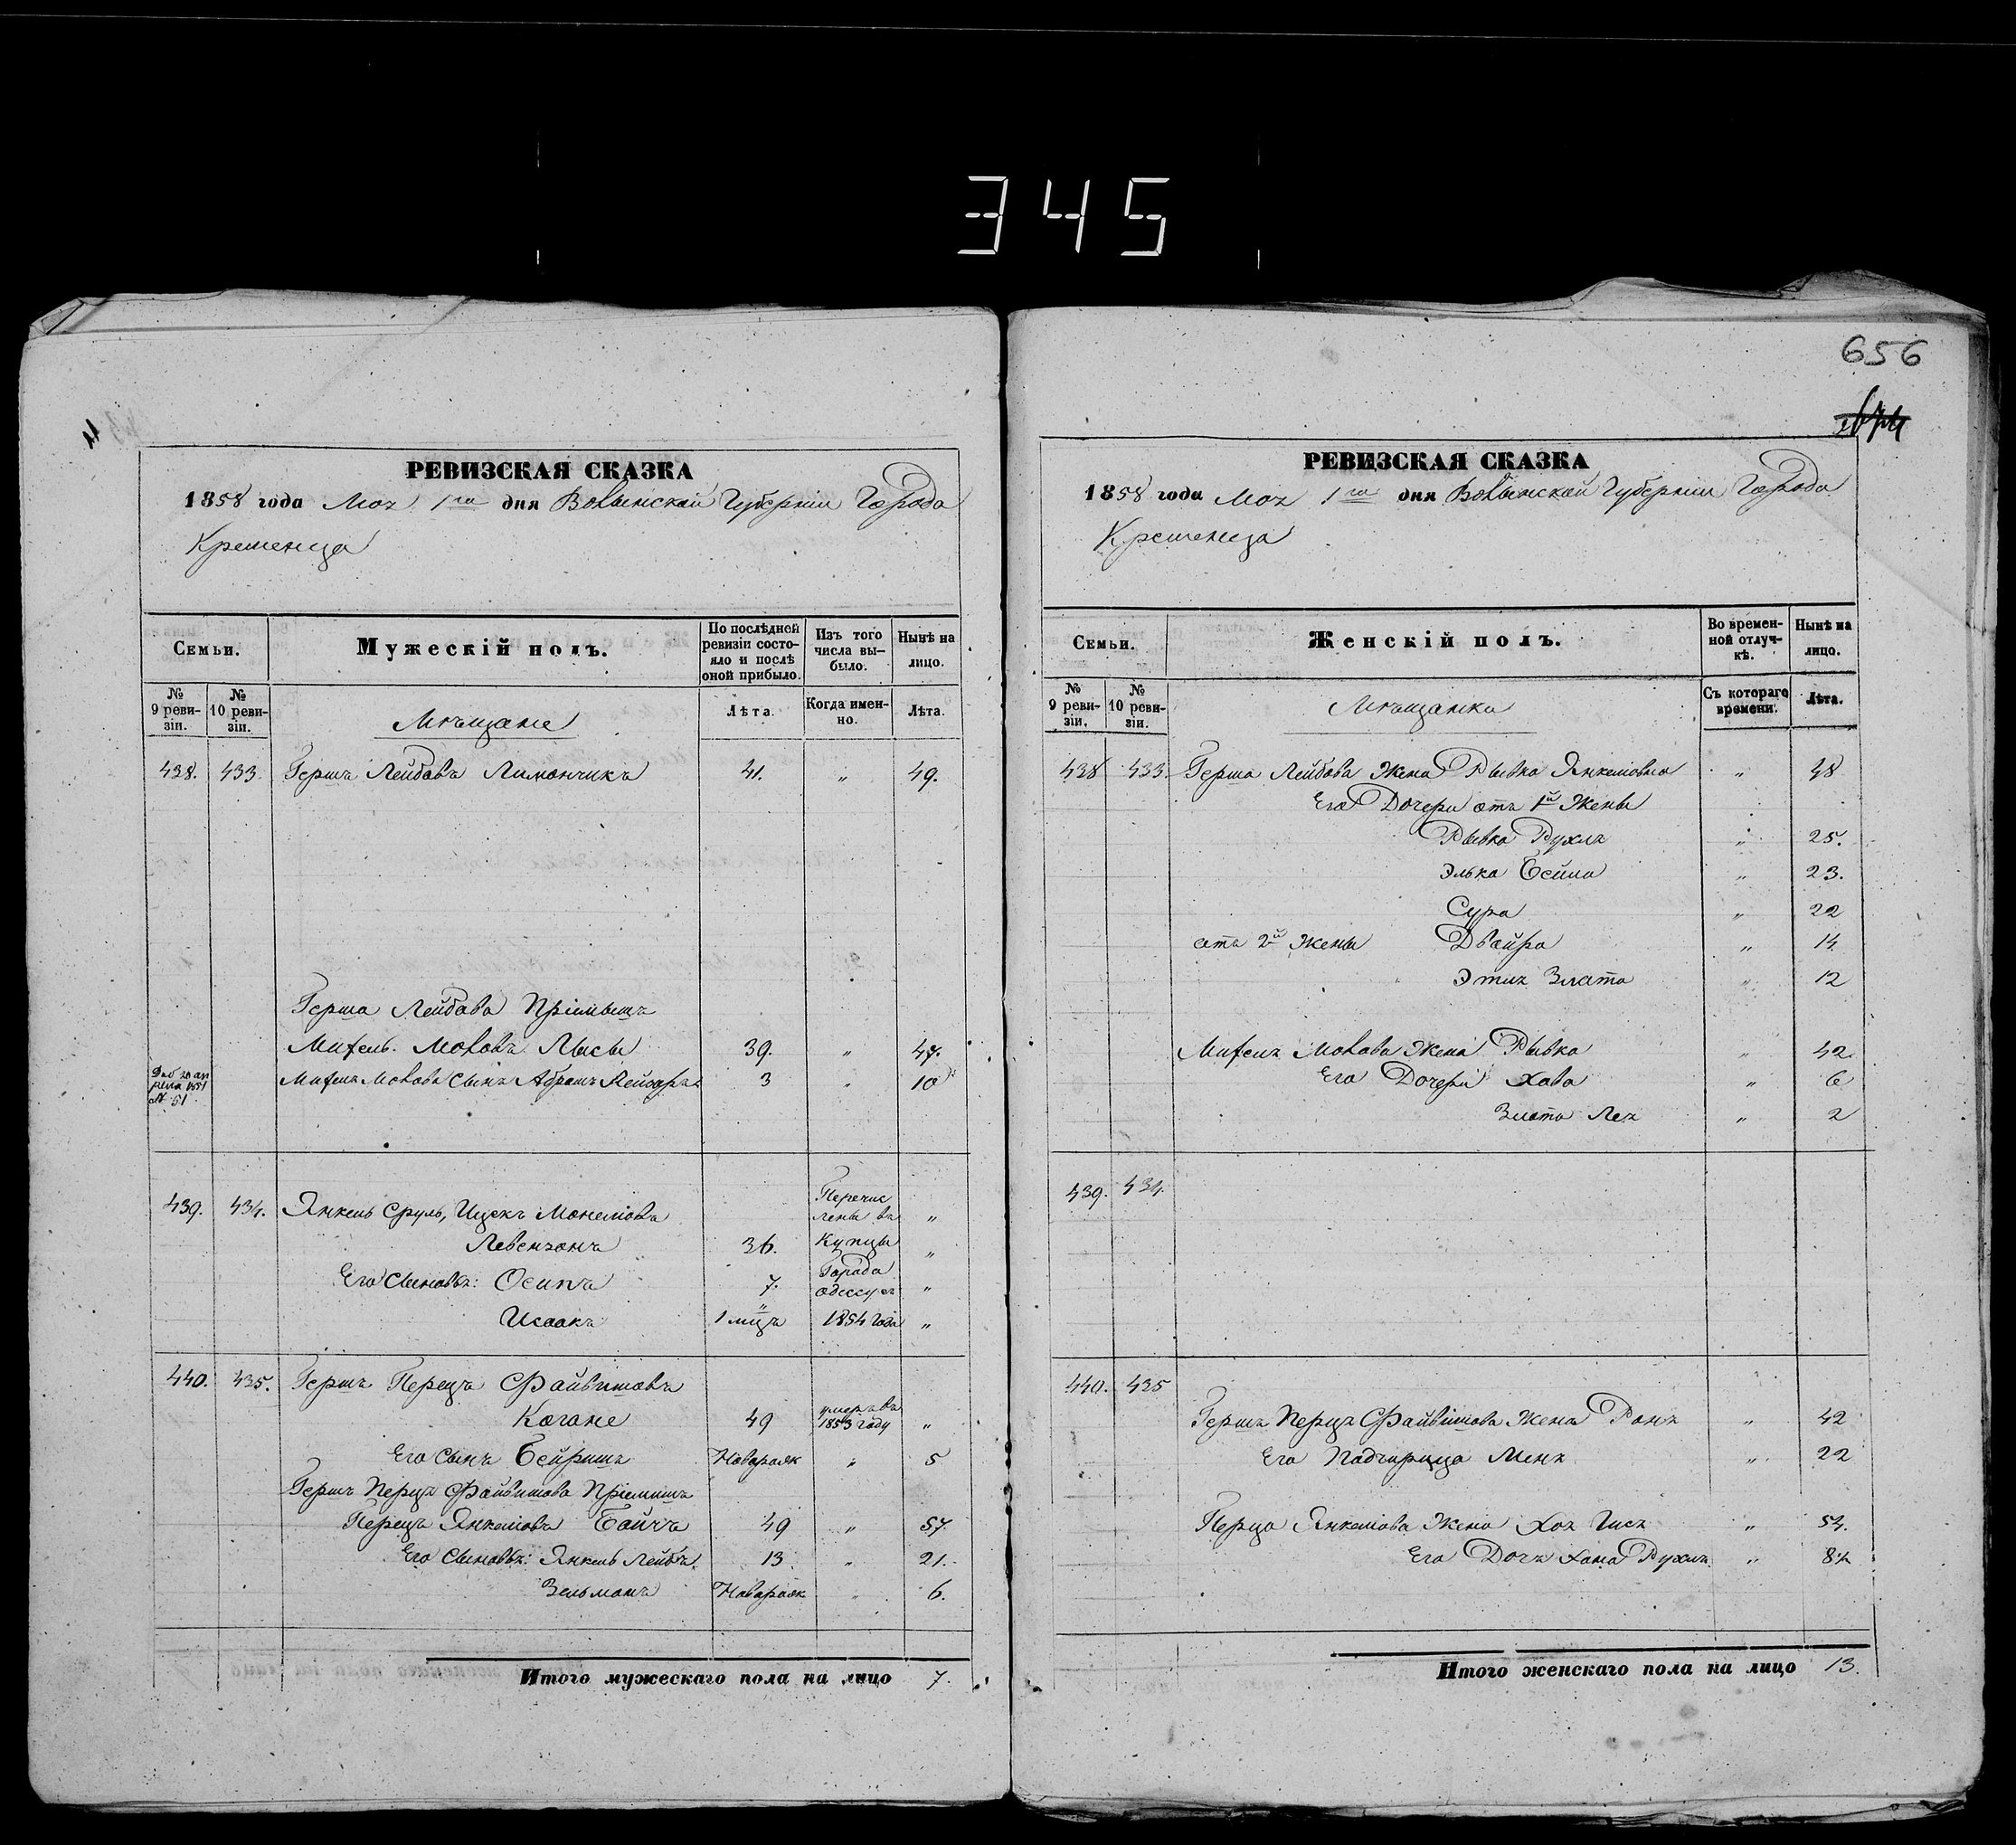 345
656
РЕВИЗСКАЯ СКАЗКА
1858 года Моя 1го дня Волынской Губернии Города
Кременца
Семьи.
Мужескій полъ.
По послѣдней ревизіи состояло и послѣ оной прибыло.
Изъ того числа выбыло.
Нынѣ на лицо.
№ 9 ревизіи.
№ 10 ревизіи.
Мѣщане
Лѣта.
Когда именно.
Лѣта.
438. 433. Гершъ Лейбовъ Лимончикъ 41. " 49.
Герша Лейбова Пріемышъ
Михель Моковъ Лысы 39. " 47.
Михеля Мокова Сынъ Абрамъ 3 " 10
439. 434. Янкель Сруль, Ицекъ Монешовъ "
Левензонъ 36. "
Его Сыновья: Осипъ 7. "
Исаакъ 1 мцъ "
Перечис
лены въ
Купцы
Города
1854 года
440. 435. Гершъ Перецъ Файвишовъ
Когане 49 умеръ въ 1853 году "
Его Сынъ Бейришъ Новорож " 5
Гершъ Перца Файвишова Пріемышъ
Перецъ Янкелювъ 49 " 57.
Его Сыновья: Янкель Лейба 13. " 21.
Зельманъ Новорож " 6.
Итого мужескаго пола на лицо 7.
РЕВИЗСКАЯ СКАЗКА
1858 года Моя 1го дня Волынской Губерніи Города
Кременца
Семьи.
Женскій полъ.
Во временной отлучкѣ.
Нынѣ на лицо.
№ 9 ревизіи.
№ 10 ревизіи.
Мѣщанки
Съ котораго времени.
Лѣта.
438 433. Герша Лейбова Жена Рывка Янкелювна " 48
Его Дочери отъ 1й Жены
Рывка Рухля " 25.
Элька Бейла " 23.
Сура " 22
отъ 2й Жены Двойра " 14
Этля Злата " 12
Михеля Мокова Жена Рывка " 42
Его Дочери Хава " 6
Злата Лея " 2
439. 434.
440. 435
Гершъ Перца Файвишова Жена " 42
Его Падчирица Меня " 22
Перца Янкелюва Жена Хая " 54.
Его Дочъ Хана Рухля " 8½
Итого женскаго пола на лицо 13.